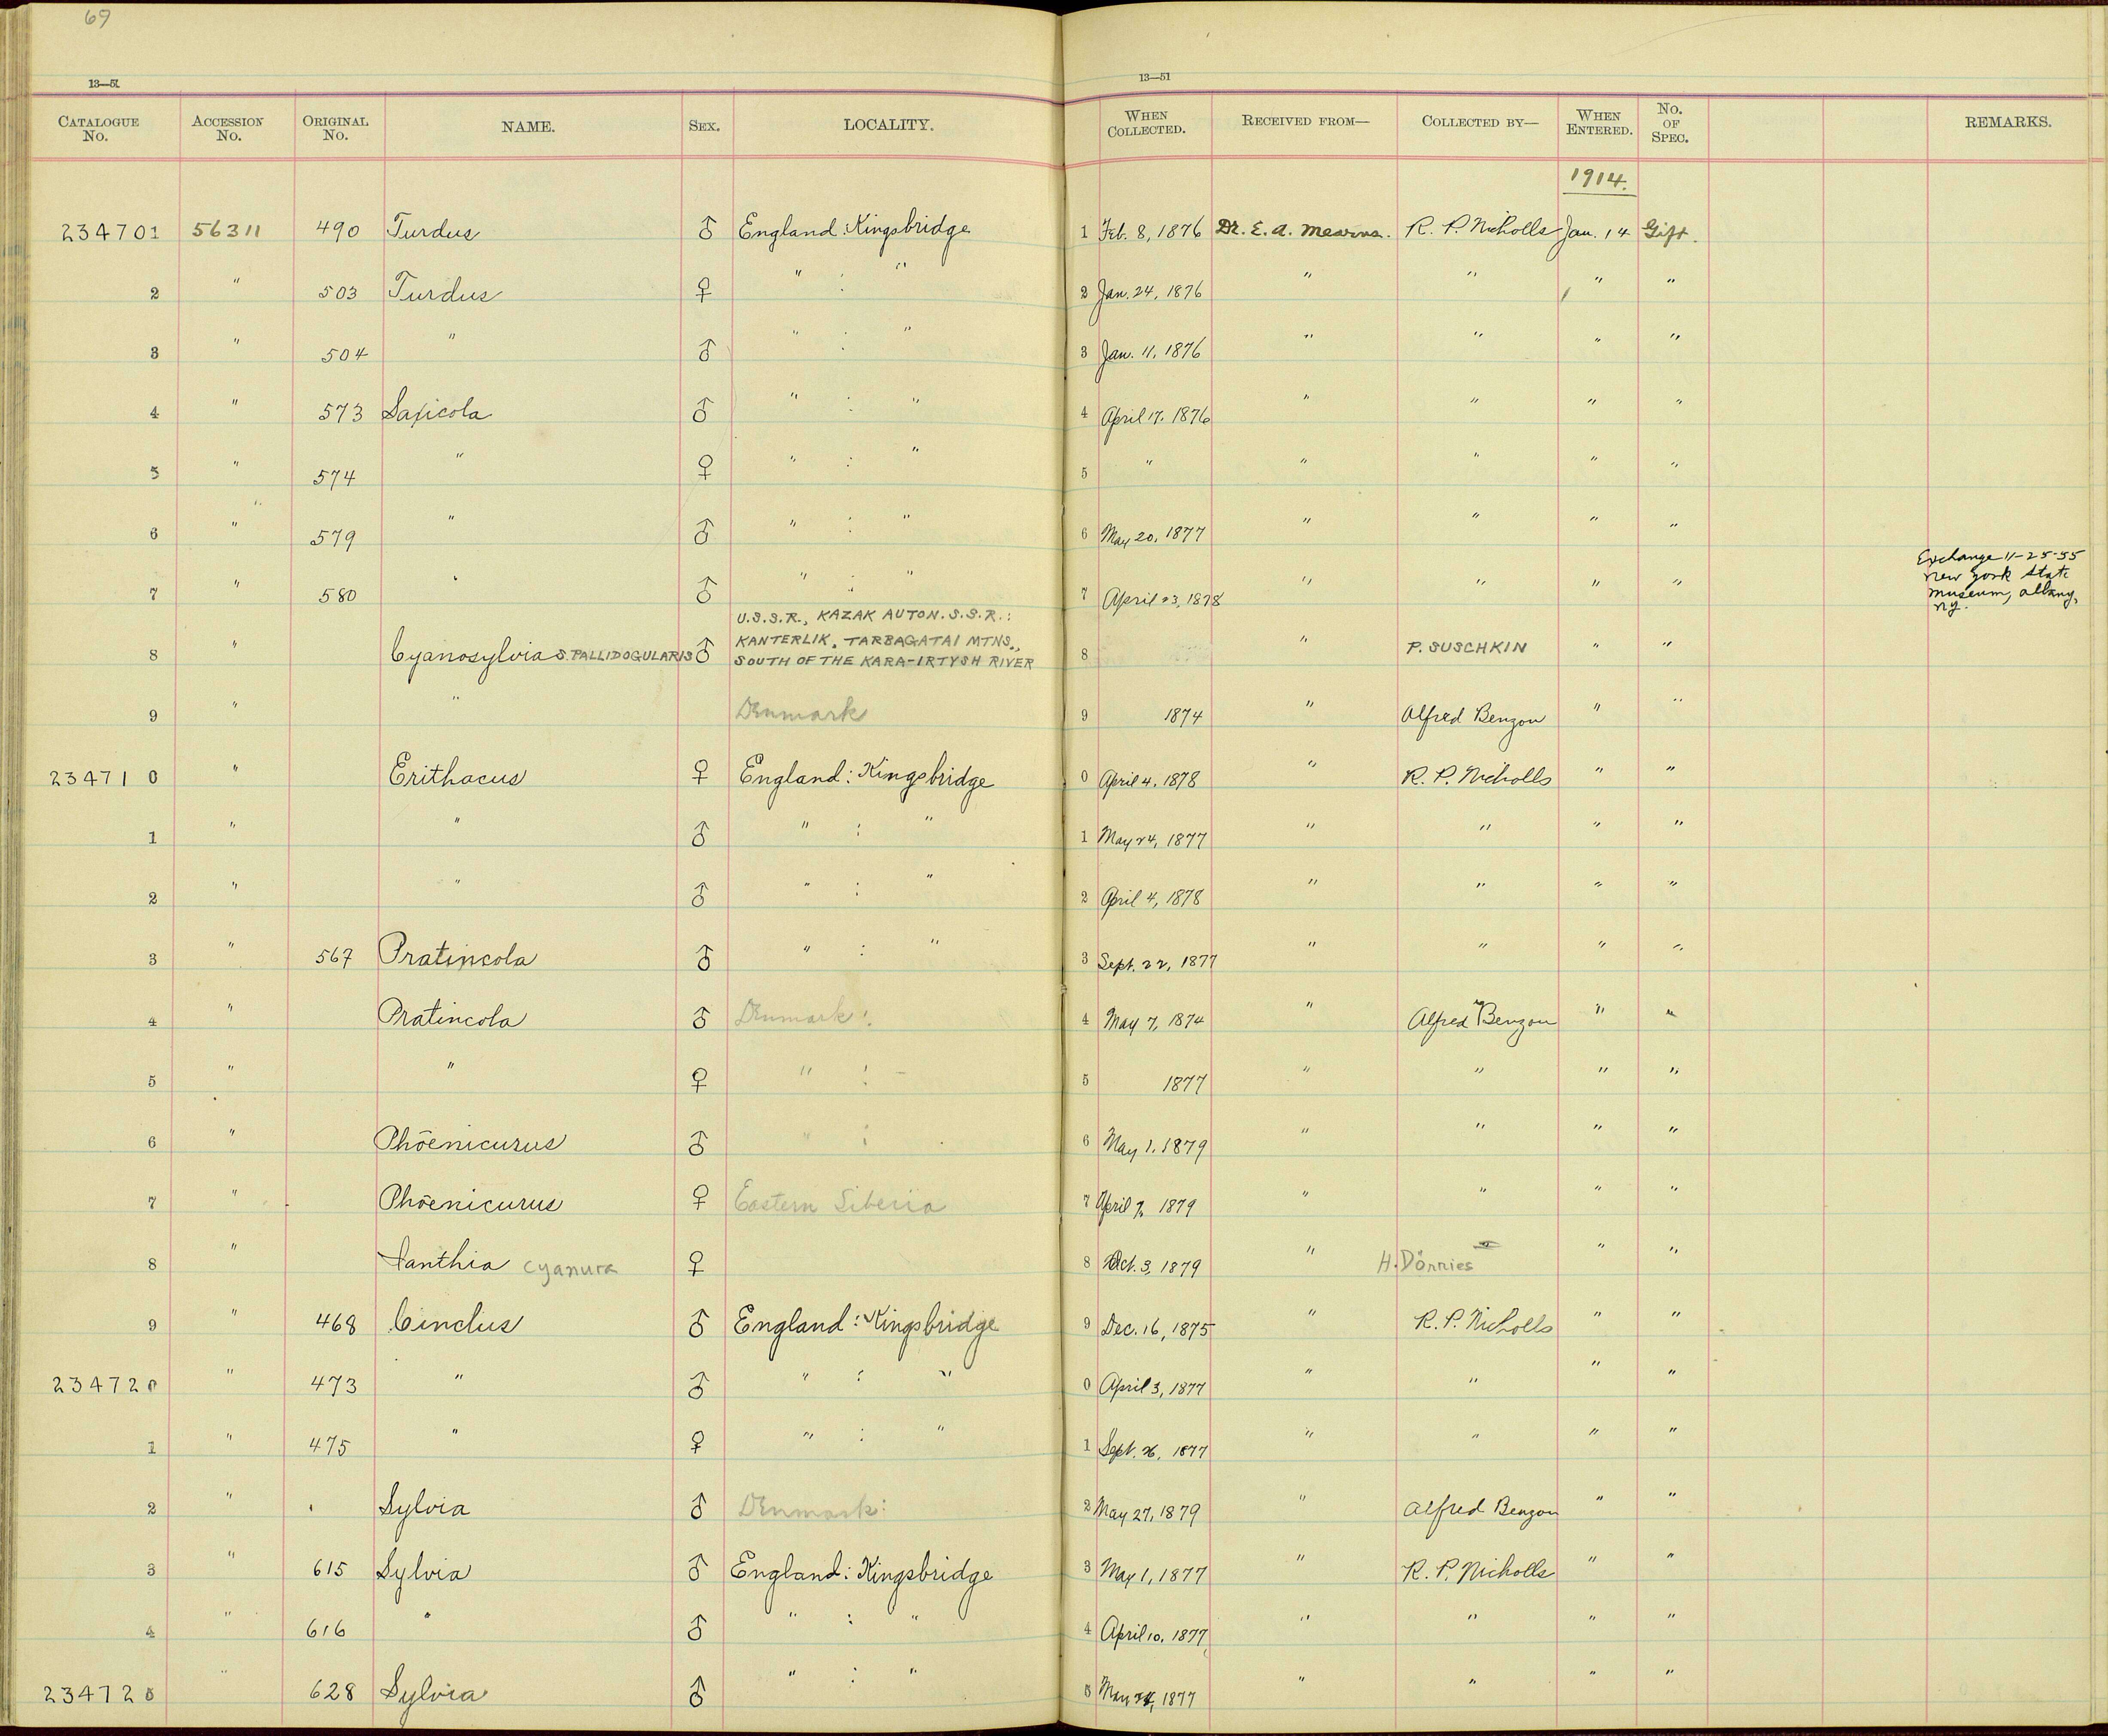 69
13—51 13—51
CATALOGUE No. ACCESSION No. ORIGINAL No. NAME. SEX. LOCALITY. WHEN COLLECTED. RECEIVED FROM— COLLECTED BY— WHEN ENTERED. No. OF SPEC. REMARKS.
1914.
234701 56311 490 Turdus ♂ England: Kingsbridge 1 Feb. 8, 1876 Dr. E. A. Mearns. R. P. Nicholls Jan. 14 Gift.
2 " 503 Turdus ♀ " : " 2 Jan. 24, 1876 " " " "
3 " 504 " ♂ " : " 3 Jan. 11, 1876 " " " "
4 " 573 Saxicola ♂ " : " 4 April 17, 1876 " " " "
5 " 574 " ♀ " : " 5 " " " " "
6 " 579 " ♂ " : " 6 May 20, 1877 " " " "
7 " 580 " ♂ " : " 7 April 23, 1878 " " " " Exchange 11-25-55
New York State
Museum, Albany,
NY.
8 " Cyanosylvia S. PALLIDOGULARIS ♂ U.S.S.R., KAZAK AUTON. S.S.R.:
KANTERLIK, TARBAGATAI MTNS.,
SOUTH OF THE KARA-IRTYSH RIVER 8 " P. SUSCHKIN " "
9 " " Denmark 9 1874 " Alfred Benzon " "
234710 " Erithacus ♀ England: Kingsbridge 0 April 4, 1878 " R. P. Nicholls " "
1 " " ♂ " : " 1 May 24, 1877 " " " "
2 " " ♂ " : " 2 April 4, 1878 " " " "
3 " 567 Pratincola ♂ " : " 3 Sept. 22, 1877 " " " "
4 " Pratincola ♂ Denmark: 4 May 7, 1874 " Alfred Benzon " "
5 " " ♀ " : 5 1877 " " " "
6 " Phoenicurus ♂ " : 6 May 1, 1879 " " " "
7 " Phoenicurus ♀ Eastern Siberia 7 April 7, 1879 " " " "
8 " Ianthia cyanura ♀ 8 Oct. 3, 1879 " H. Dörries " "
9 " 468 Cinclus ♂ England: Kingsbridge 9 Dec. 16, 1875 " R. P. Nicholls " "
234720 " 473 " ♂ " : " 0 April 3, 1877 " " " "
1 " 475 " ♀ " : " 1 Sept. 26, 1877 " " " "
2 " Sylvia ♂ Denmark: 2 May 27, 1879 " Alfred Benzon " "
3 " 615 Sylvia ♂ England: Kingsbridge 3 May 1, 1877 " R. P. Nicholls " "
4 " 616 " ♂ " : " 4 April 10, 1877 " " " "
234725 " 628 Sylvia ♂ " : " 5 May 1877 " " " "